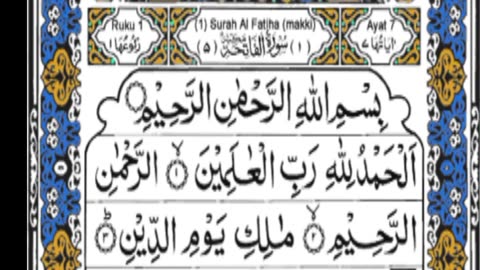 Ruku 1
رُكُوْعُهَا ١
(1) Surah Al Fatiha (makki)
(٥) سُوْرَةُ الْفَاتِحَةِ مَكِّيَّةٌ (١)
Ayat 7
اٰيَاتُهَا ٧
بِسْمِ اللّٰهِ الرَّحْمٰنِ الرَّحِيْمِ
اَلْحَمْدُ لِلّٰهِ رَبِّ الْعٰلَمِيْنَ ١ الرَّحْمٰنِ
الرَّحِيْمِ ٢ مٰلِكِ يَوْمِ الدِّيْنِ ٣